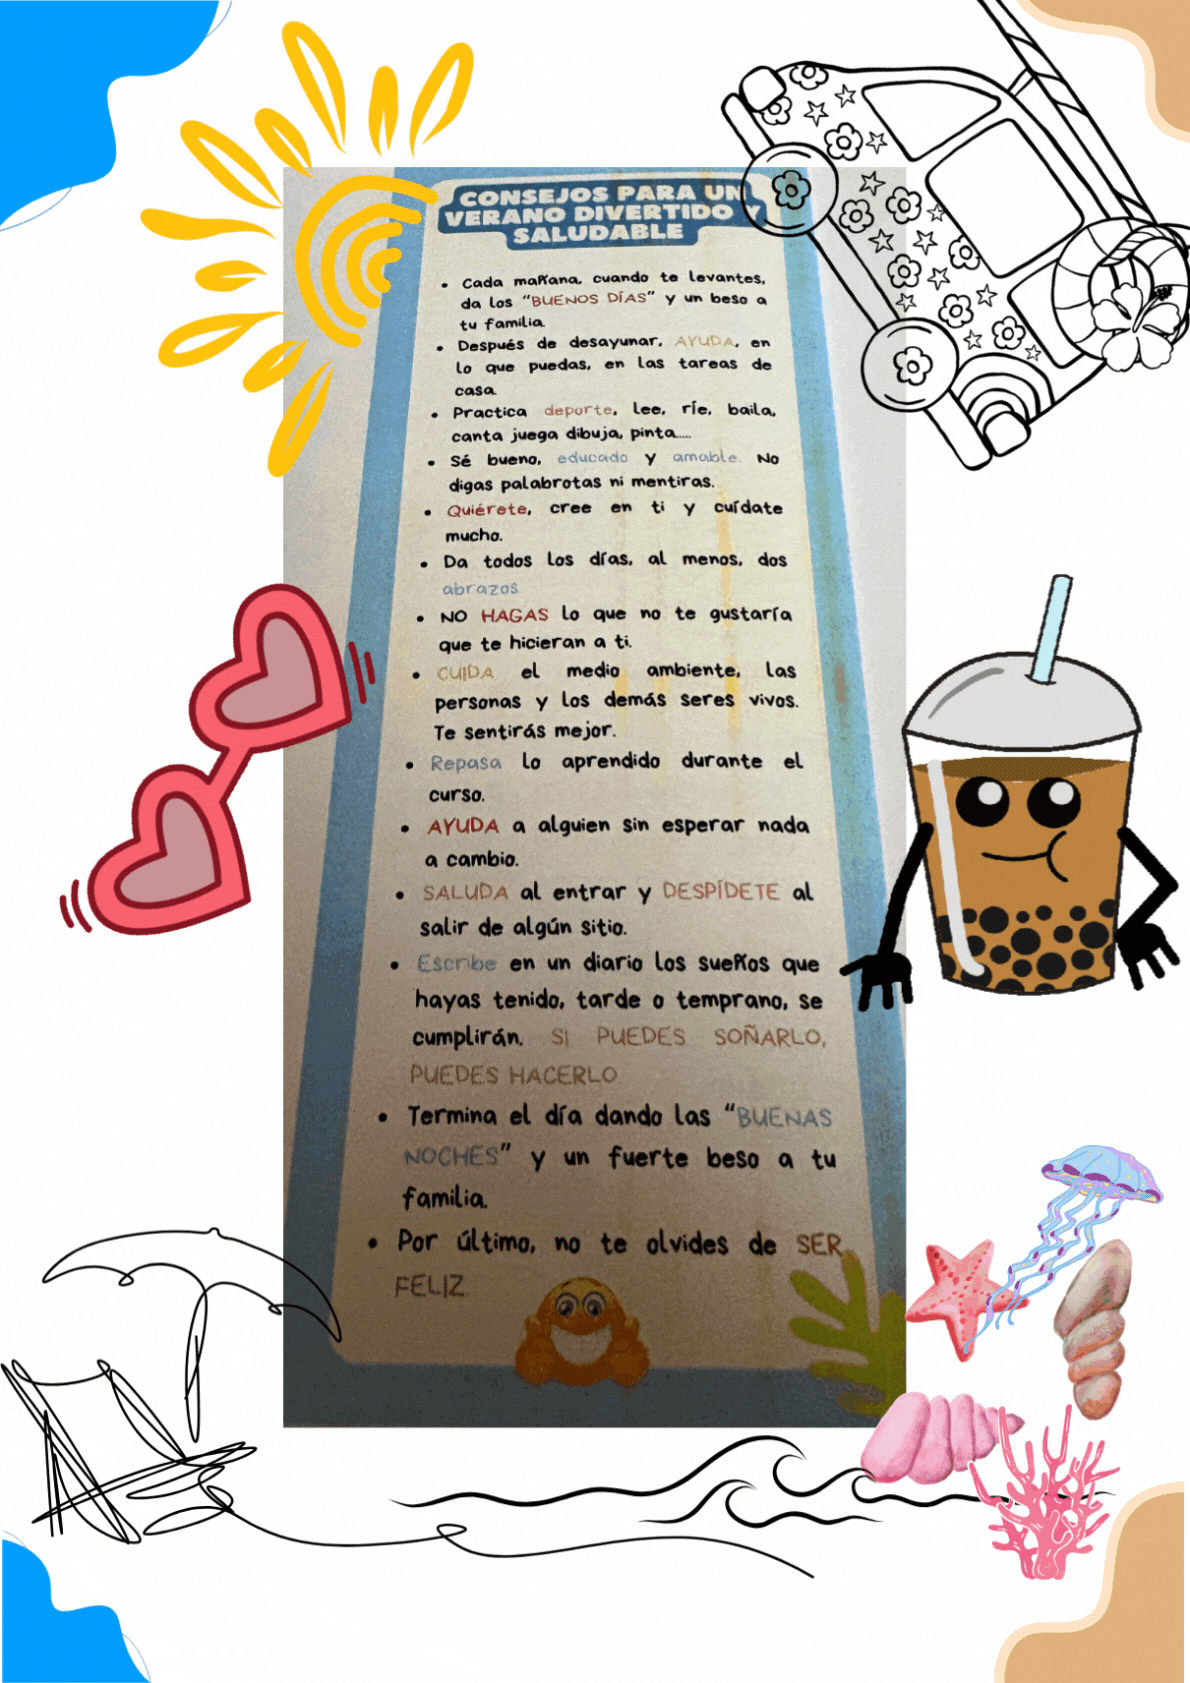 CONSEJOS PARA UN
VERANO DIVERTIDO Y
SALUDABLE
• Cada mañana, cuando te levantes,
da los "BUENOS DÍAS" y un beso a
tu familia.
• Después de desayunar, AYUDA, en
lo que puedas, en las tareas de
casa.
• Practica deporte, lee, ríe, baila,
canta juega dibuja, pinta.....
• Sé bueno, educado y amable. No
digas palabrotas ni mentiras.
• Quiérete, cree en ti y cuídate
mucho.
• Da todos los días, al menos, dos
abrazos.
• NO HAGAS lo que no te gustaría
que te hicieran a ti.
• CUIDA el medio ambiente, las
personas y los demás seres vivos.
Te sentirás mejor.
• Repasa lo aprendido durante el
curso.
• AYUDA a alguien sin esperar nada
a cambio.
• SALUDA al entrar y DESPÍDETE al
salir de algún sitio.
• Escribe en un diario los sueños que
hayas tenido, tarde o temprano, se
cumplirán. SI PUEDES SOÑARLO,
PUEDES HACERLO
• Termina el día dando las "BUENAS
NOCHES" y un fuerte beso a tu
familia.
• Por último, no te olvides de SER
FELIZ.